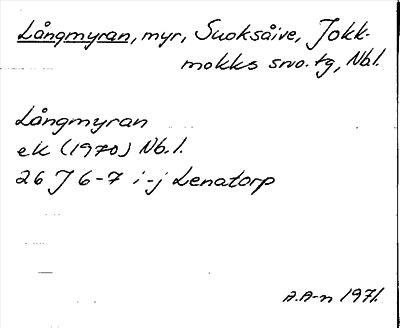 Långmyran, myr, Suoksåive, Jokk-
mokks sno. tg, Nbl.
Långmyran
ek (1970) Nb.l.
26 J 6-7 i-j Lenatorp
A.A-n 1971.